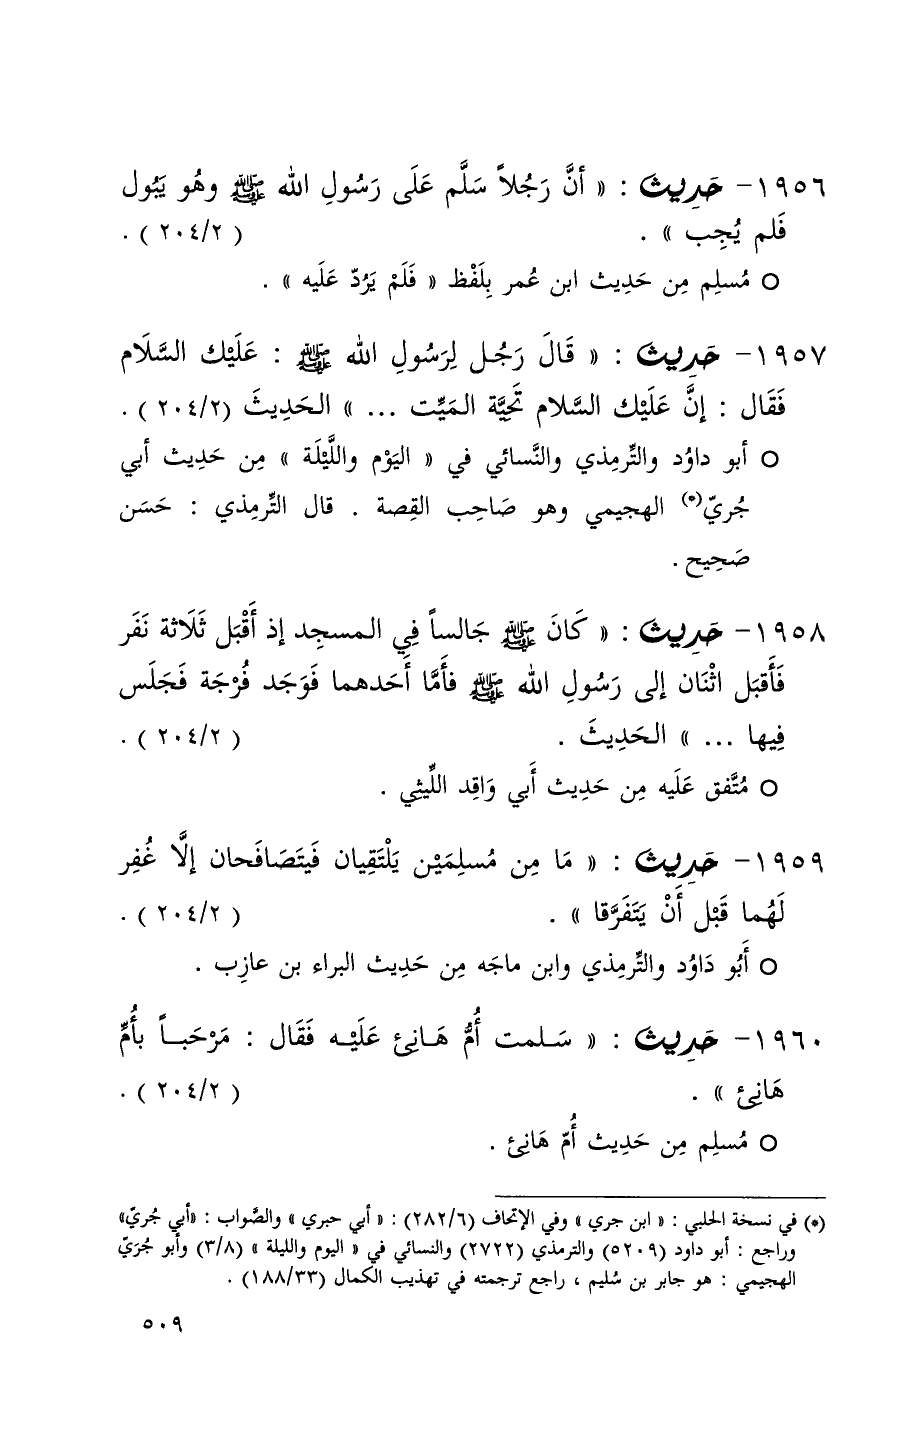 ١٩٥٦- حَدِيث : « أنَّ رَجُلاً سَلَّم عَلَى رَسُولِ الله ﷺ وهُو يَبُول
فَلم يُجِب » . ( ٢٠٤/٢ ) .
○ مُسلِم مِن حَدِيث ابن عُمر بِلَفْظ « فَلَمْ يَرُدّ عَلَيه » .
١٩٥٧- حَدِيث : « قَالَ رَجُل لِرَسُولِ الله ﷺ : عَلَيْك السَّلَام
فَقَال : إنَّ عَلَيْك السَّلام تَحِيَّة المَيِّت ... » الحَدِيثَ (٢٠٤/٢ ) .
○ أبو داوُد والتِّرمِذي والنَّسائي في « اليَوْم واللَّيْلَة » مِن حَدِيث أبي
جُريّ(*) الهجيمي وهو صَاحِب القِصة . قال التِّرمِذي : حَسَن
صَحِيح .
١٩٥٨- حَدِيث : « كَانَ ﷺ جَالساً فِي المسجِد إذ أَقْبَل ثَلَاثة نَفَر
فَأَقبَل اثْنَان إلى رَسُولِ الله ﷺ فأَمَّا أَحَدهما فَوَجَد فُرْجَة فَجَلَس
فِيها ... » الحَدِيثَ . ( ٢٠٤/٢ ) .
○ مُتَّفق عَلَيه مِن حَدِيث أَبي وَاقِد اللِّيثِي .
١٩٥٩- حَدِيث : « مَا مِن مُسلِمَيْن يَلْتَقِيان فَيتَصَافَحان إلَّا غُفِر
لَهُما قَبْل أَنْ يَتَفَرَّقا » . ( ٢٠٤/٢ ) .
○ أَبُو دَاوُد والتِّرمِذي وابن ماجَه مِن حَدِيث البراء بن عازِب .
١٩٦٠- حَدِيث : « سَلمت أُمُّ هَانِئ عَلَيْه فَقَال : مَرْحَباً بأُمِّ
هَانِئ » . ( ٢٠٤/٢ ) .
○ مُسلِم مِن حَدِيث أُمّ هَانِئ .
(*) في نسخة الحلبي : « ابن جري » وفي الإتحاف (٢٨٢/٦) : « أبي حبري » والصَّواب : «أبي جُريّ»
وراجع : أبو داود (٥٢٠٩) والترمذي (٢٧٢٢) والنسائي في « اليوم والليلة » (٣/٨) وأبو جُرَيّ
الهجيمي : هو جابر بن سُليم ، راجع ترجمته في تهذيب الكمال (١٨٨/٣٣) .
٥٠٩